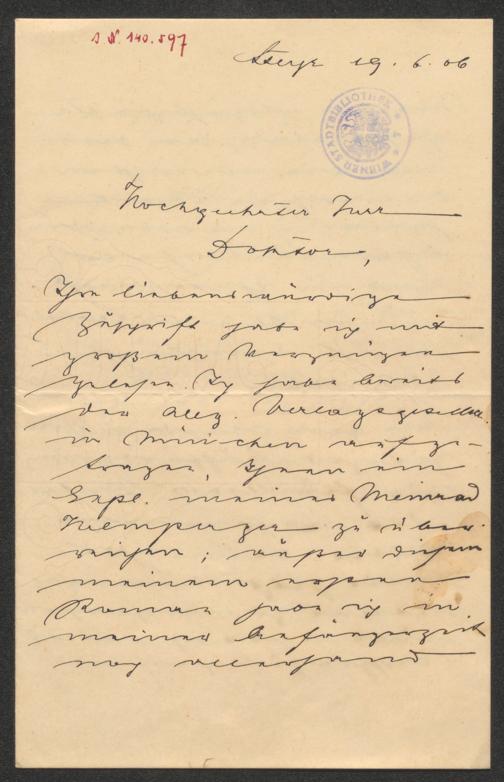 J. N. 140.597
Steyr 19. 6. 06
WIENER STADTBIBLIOTHEK
Hochgeehrter Herr
Doktor,
Ihre liebenswürdige
Zuschrift habe ich mit
großem Vergnügen
gelesen. Ich habe bereits
der Allg. Verlagsgesellsch.
in München aufge-
tragen, Ihnen ein
Expl. meines Meinrad
Helmperger zu über-
reichen; außer diesem
meinem ersten
Roman habe ich in
meiner Anfängerzeit
noch allerhand